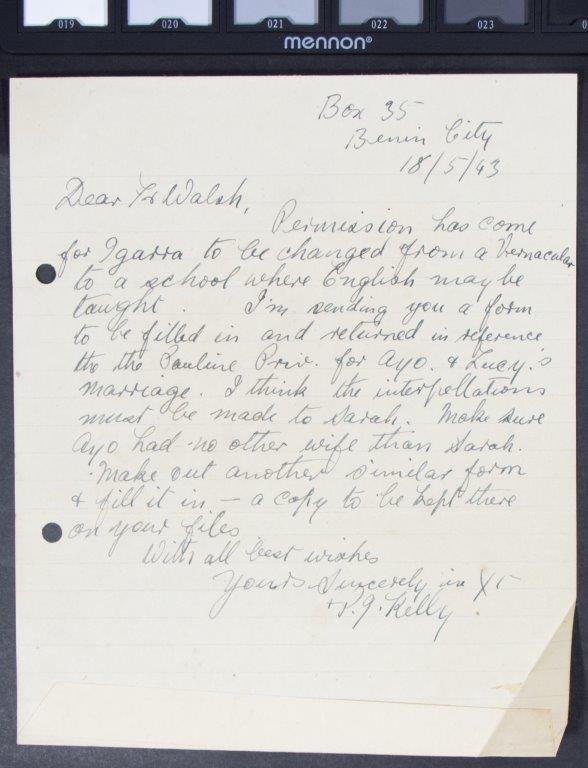 019 020 021 022 023
mennon®
Box 35
Benin City
18/5/43
Dear Fr Walsh,
Permission has come
for Igarra to be changed from a Vernacular
to a school where English may be
taught. I'm sending you a form
to be filled in and returned in reference
the the Pauline Priv. for Ayo. & Lucy's
marriage. I think the interpellations
must be made to Sarah. Make sure
Ayo had no other wife than Sarah.
Make out another similar form
& fill it in – a copy to be kept there
on your files
With all best wishes
Yours Sincerely in Xt
+P.J. Kelly